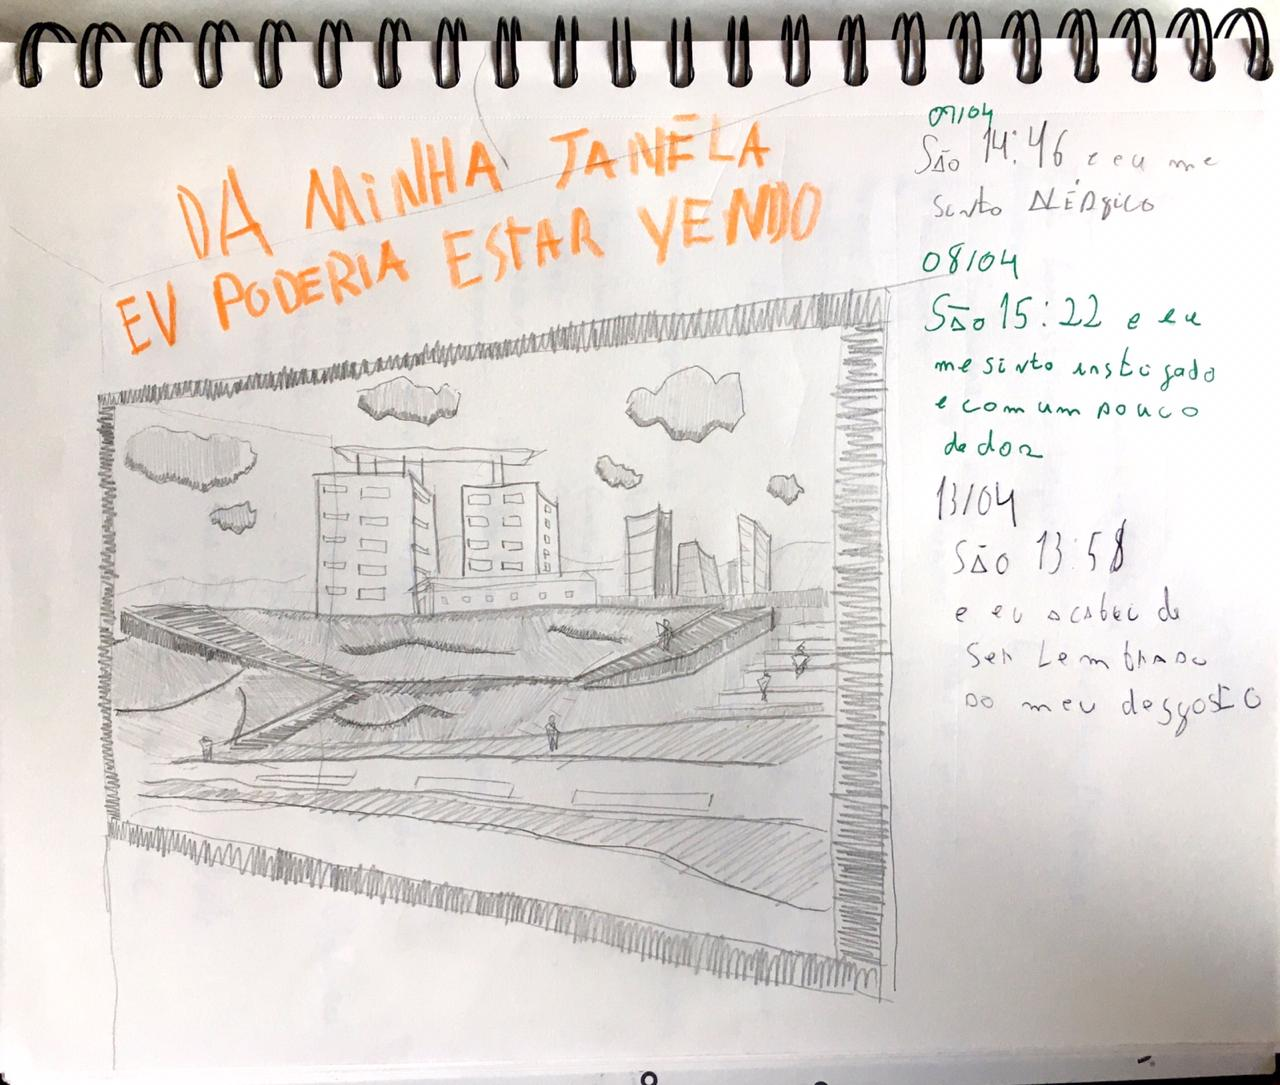 DA MiNHA JANELA
EU PODERIA ESTAR VENDO
07/04
São 14:46 e eu me
sinto ALÉRgico
08/04
São 15:22 e eu
me sinto instigado
e com um pouco
de dor
13/04
São 13:58
e eu acabei de
ser Lembrado
do meu desgosto